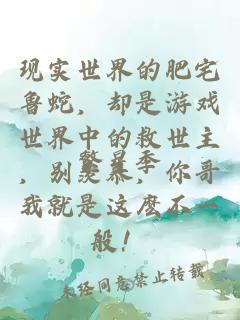 现实世界的肥宅
鲁蛇，却是游戏
世界中的救世主
，别羡慕，你哥
繁星季
我就是这麽不一
般！
未经同意禁止转载